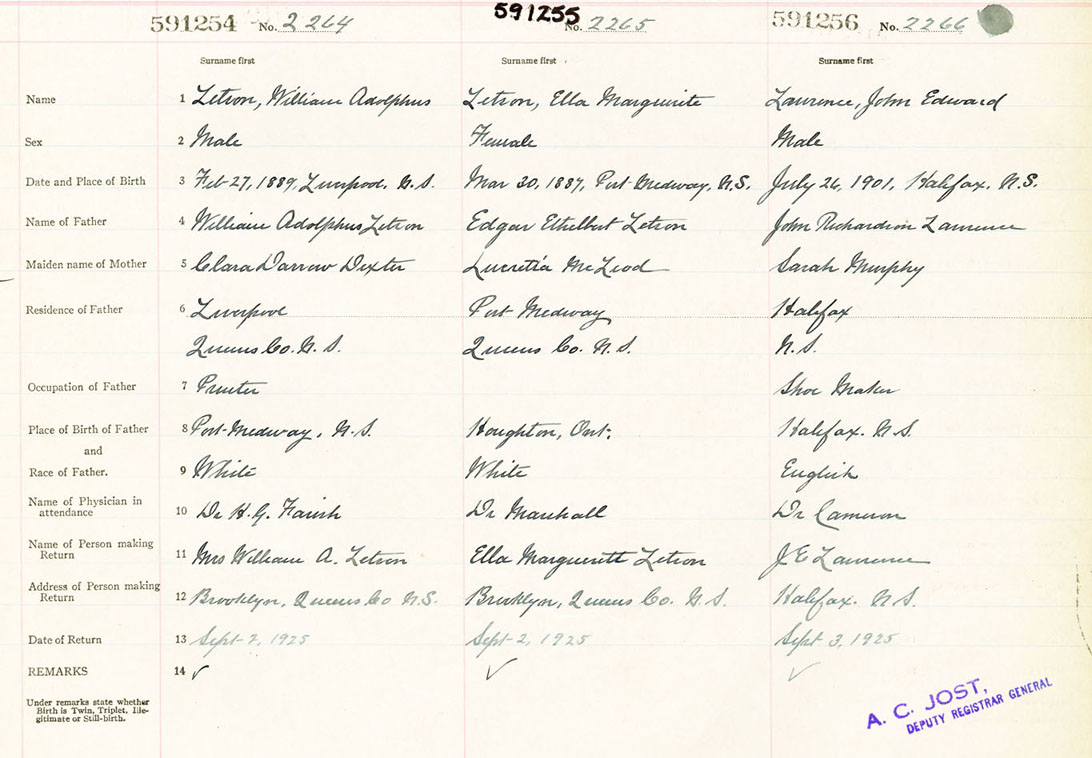 591254 No. 2264 591255 No. 2265 591256 No. 2266
Surname first Surname first Surname first
Name 1 Letson, William Adolphus Letson, Ella Marguerite Lawrence, John Edward
Sex 2 Male Female Male
Date and Place of Birth 3 Feb 27, 1889, Liverpool, N.S. Mar 30, 1887, Port Medway, N.S. July 26, 1901, Halifax. N.S.
Name of Father 4 William Adolphus Letson Edgar Ethelbert Letson John Richardson Lawrence
Maiden name of Mother 5 Clara Darrow Dexter Lucretia McLeod Sarah Murphy
Residence of Father 6 Liverpool Port Medway Halifax
Queens Co. N.S. Queens Co. N.S. N.S.
Occupation of Father 7 Printer Shoe Maker
Place of Birth of Father 8 Port Medway, N.S. Houghton, Ont. Halifax. N.S.
and
Race of Father. 9 White White English
Name of Physician in
attendance 10 Dr H.G. Farish Dr Marshall Dr Cameron
Name of Person making
Return 11 Mrs William A. Letson Ella Marguerite Letson J E Lawrence
Address of Person making
Return 12 Brooklyn, Queens Co N.S. Brooklyn, Queens Co. N.S. Halifax. N.S.
Date of Return 13 Sept 2, 1925 Sept 2, 1925 Sept 3, 1925
REMARKS 14 ✓ ✓ ✓
Under remarks state whether
Birth is Twin, Triplet, Ille-
gitimate or Still-birth.
A. C. JOST,
DEPUTY REGISTRAR GENERAL